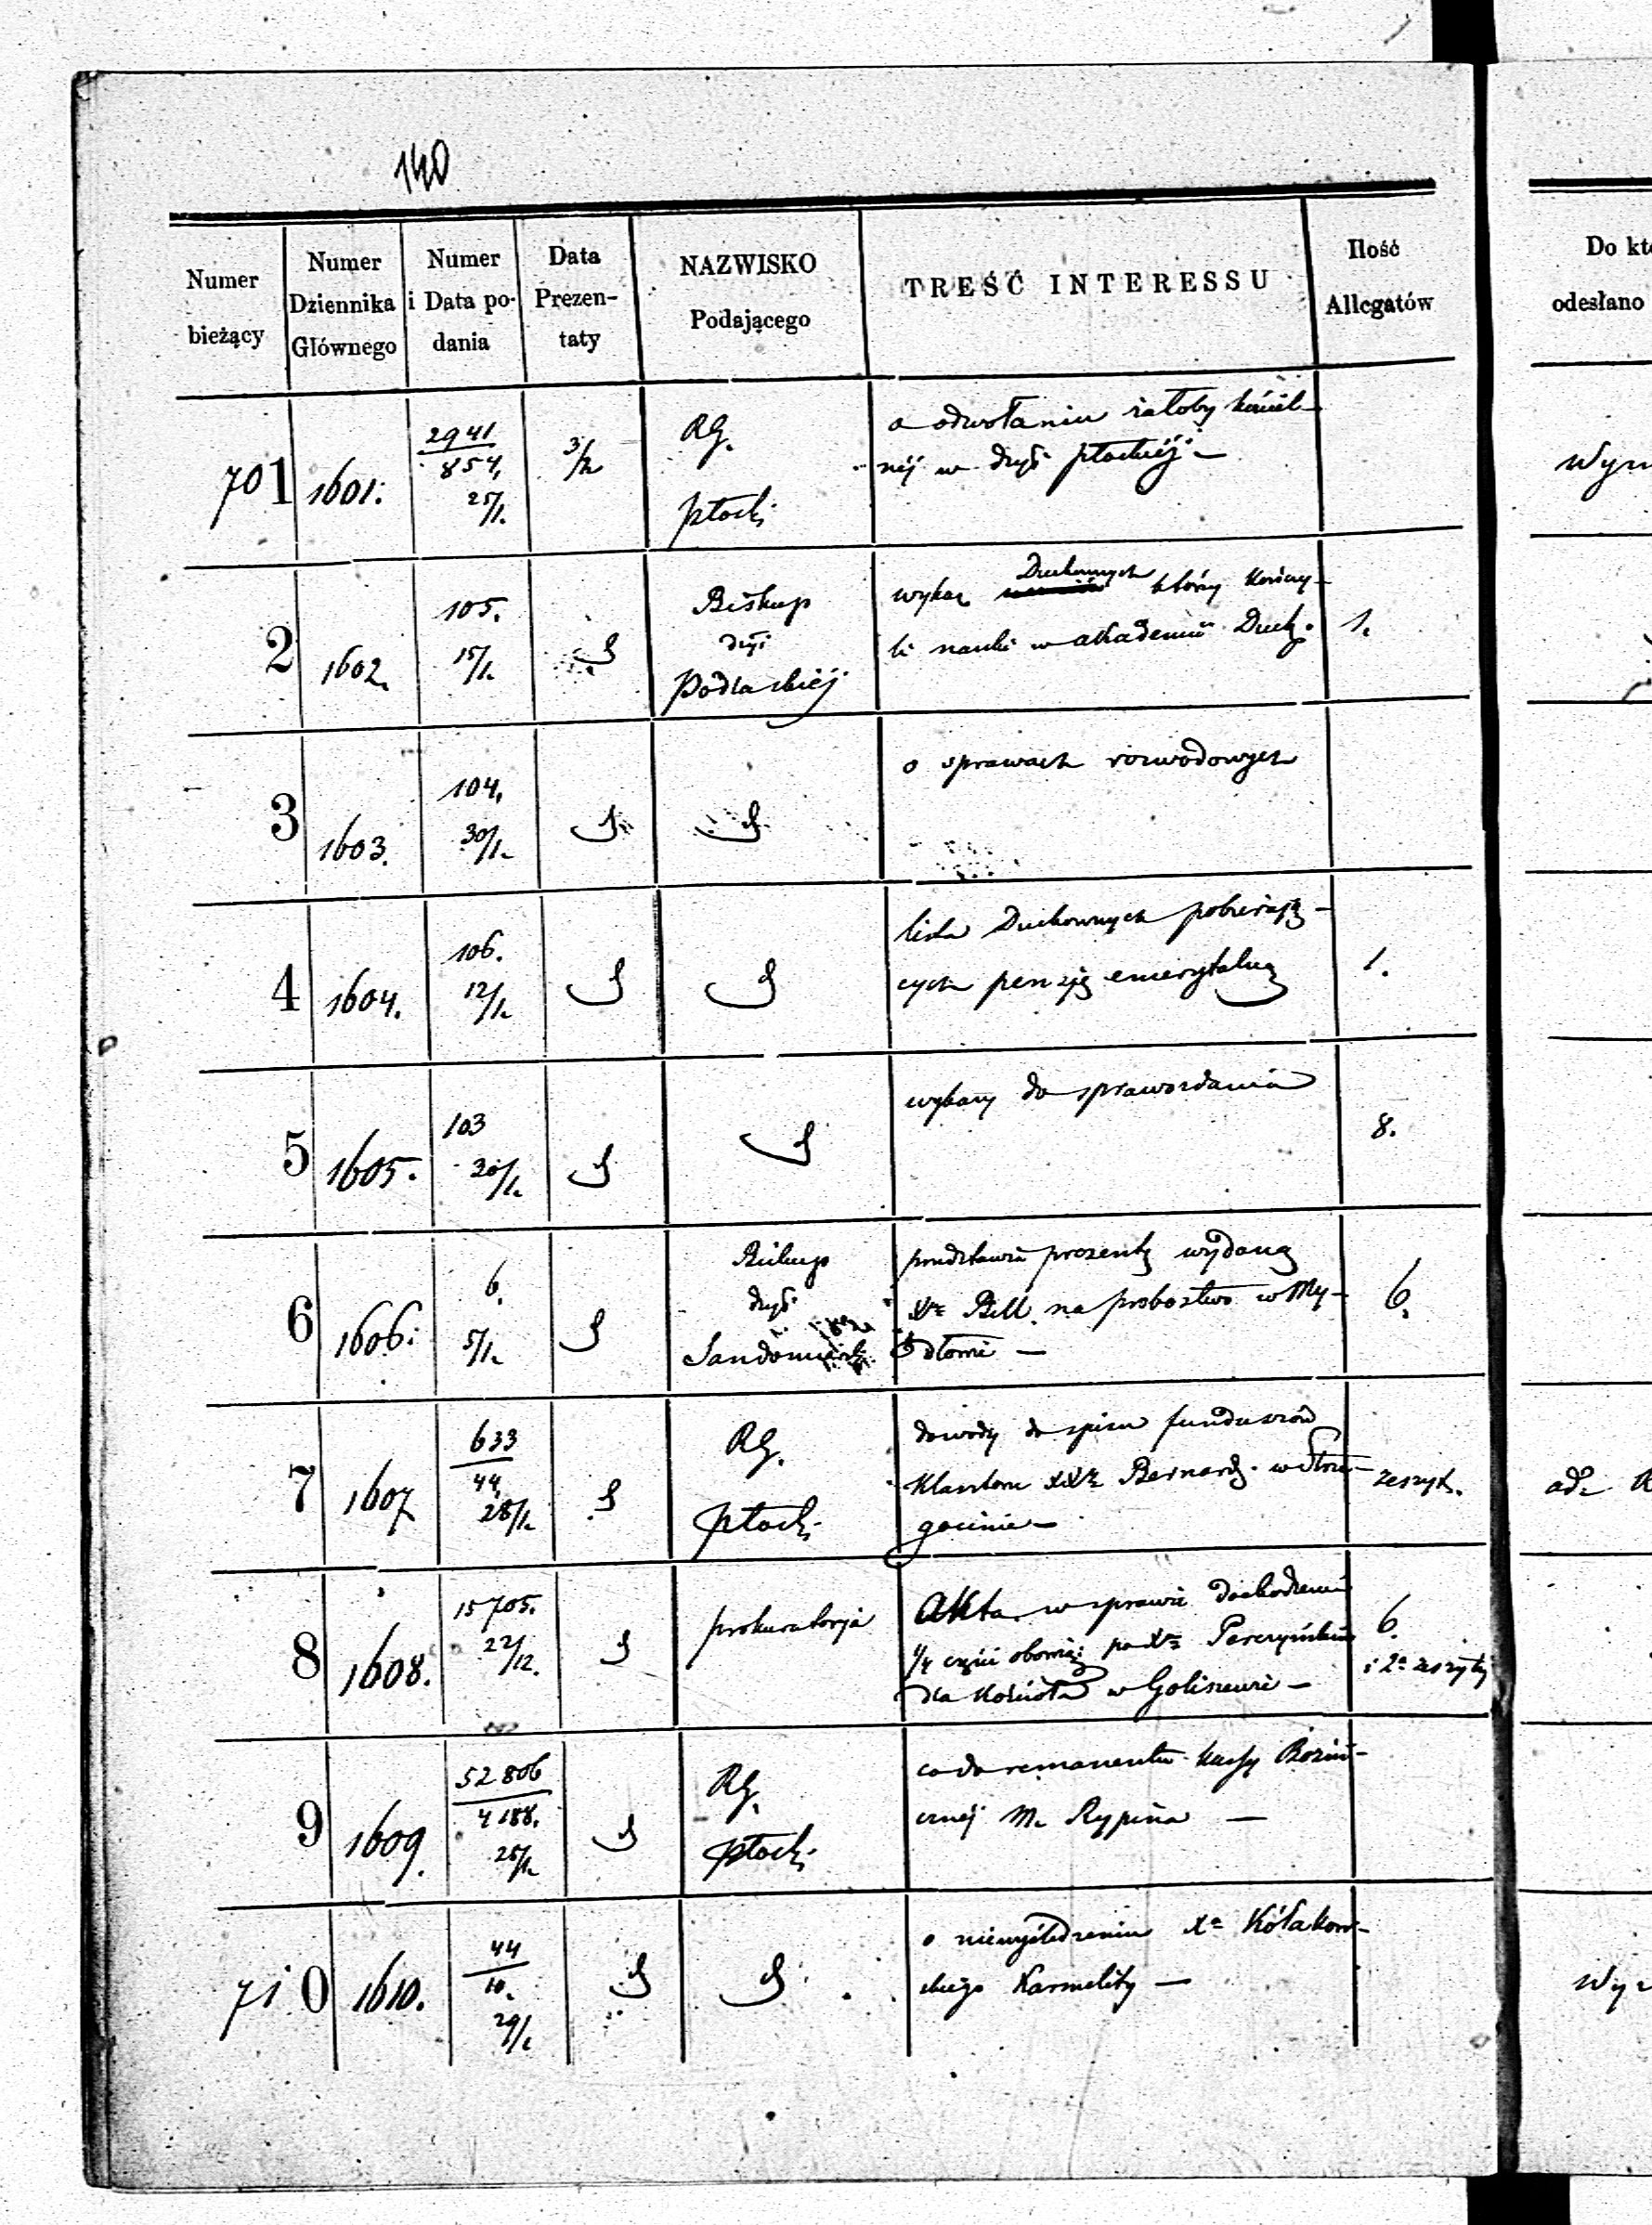 140
Numer bieżący
Numer Dziennika Głównego
Numer i Data podania
Data Prezentaty
NAZWISKO Podającego
TREŚĆ INTERESSU
Ilość Allegatów
Do kt
odesłano
701 1601. 2941/854, 25/1. 3/2 RG. Płocki
o odwołaniu żałoby kościel-
nej w dyec płockiej —
Wyr
2 1602. 105. 15/1. Biskup dyi Podlaskiéj 1.
wykaz Duchownych który kończy-
li nauki w akademii Duch.
3 1603. 104. 30/1.
o sprawach rozwodowych
4 1604. 106. 12/1. 1.
lista Duchownych pobierają-
cych pensję emerytalną
5 1605. 103 20/1. 8.
wykazy do sprawozdania
6 1606. 6. 5/1. Biskup dyi Sandomirski 6.
przedstawia prezentę wydaną
Xu Bill. na probostwo w My-
dłowie —
7 1607 633/44, 28/1. RG. Płocki zeszyt.
dowody do spisu funduszów
Klasztoru XX Bernard. w Strze-
gocinie —
ad.
8 1608. 15705. 22/12. prokuratorja 6. i 2 zeszyty
Akta w sprawie dochodzenia
1/4 części po Xu
dla Kościoła w Goliszewie —
9 1609. 52806/4188. 25/1. RG. Płocki
co do remanentu kassy Bożni-
cznéj M. Rypina —
710 1610. 44/10. 29/1
o niewyśledzeniu Xa Kołakow-
skiego Karmelity —
Wyr